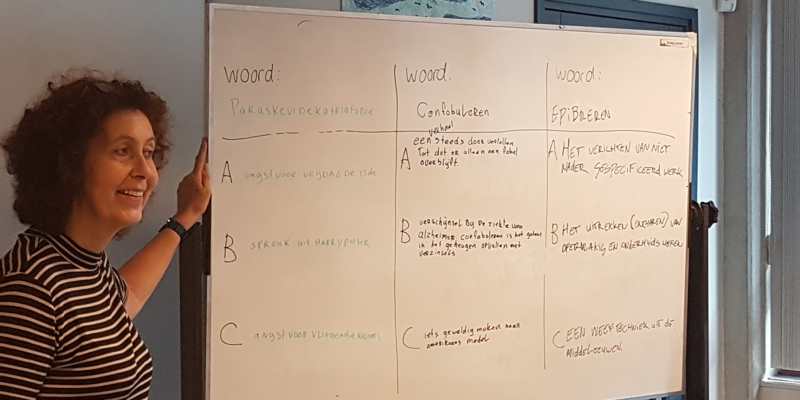 woord:
Paraskevidekatriafobie
A angst voor vrijdag de 13de
B spreuk uit Harry Potter
C angst voor
woord.
Confabuleren
verhaal
A een steeds door vertellen
Tot dat er alleen een fabel
overblijft.
B verschijnsel Bij De ziekte van
alzheimer. confabuleren is het gaten
in het geheugen opvullen met
verzinsels
C iets geweldig maken naar
amerikaans model
woord:
EPIBREREN
A HET VERRICHTEN VAN NIET
NADER GESPECIFICEERD WERK
B HET UITREKKEN VAN
EN
C EEN WEEFTECHNIEK UIT DE
MIDDELEEUWEN